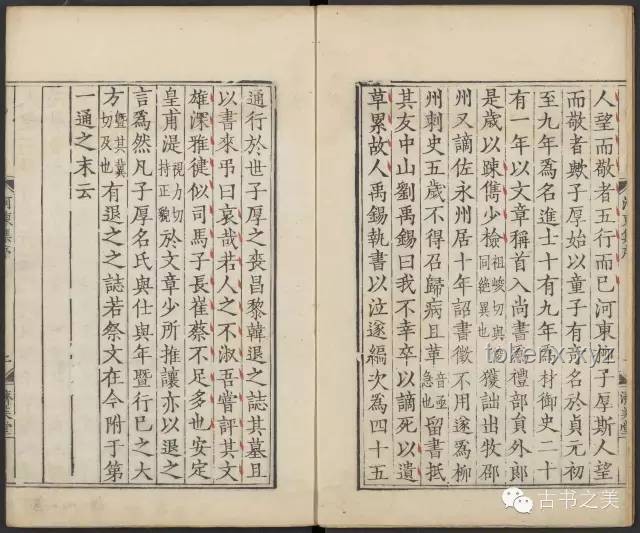 人望而敬者五行而已河東栁子厚斯人望
而敬者歟子厚始以童子有竒名於貞元初
至九年為名進士十有九年為材御史二十
有一年以文章稱首入尚書爲禮部貟外郎
是歲以踈儁少檢祖峻切與同絕異也獲訕出牧邵
州又謫佐永州居十年詔書徵不用遂爲柳
州刺史五歲不得召歸病且革音亟急也留書抵
其友中山劉禹錫曰我不幸卒以謫死以遺
草累故人禹錫執書以泣遂編次爲四十五
河東集序
濟美堂
通行於世子厚之喪昌黎韓退之誌其墓且
以書來弔曰哀哉若人之不淑吾嘗評其文
雄深雅徤似司馬子長崔蔡不足多也安定
皇甫湜視力切持正貌於文章少所推讓亦以退之
言爲然凡子厚名氏與仕與年暨行已之大
方曁其冀切及也有退之之誌若祭文在今附于第
一通之末云
古书之美